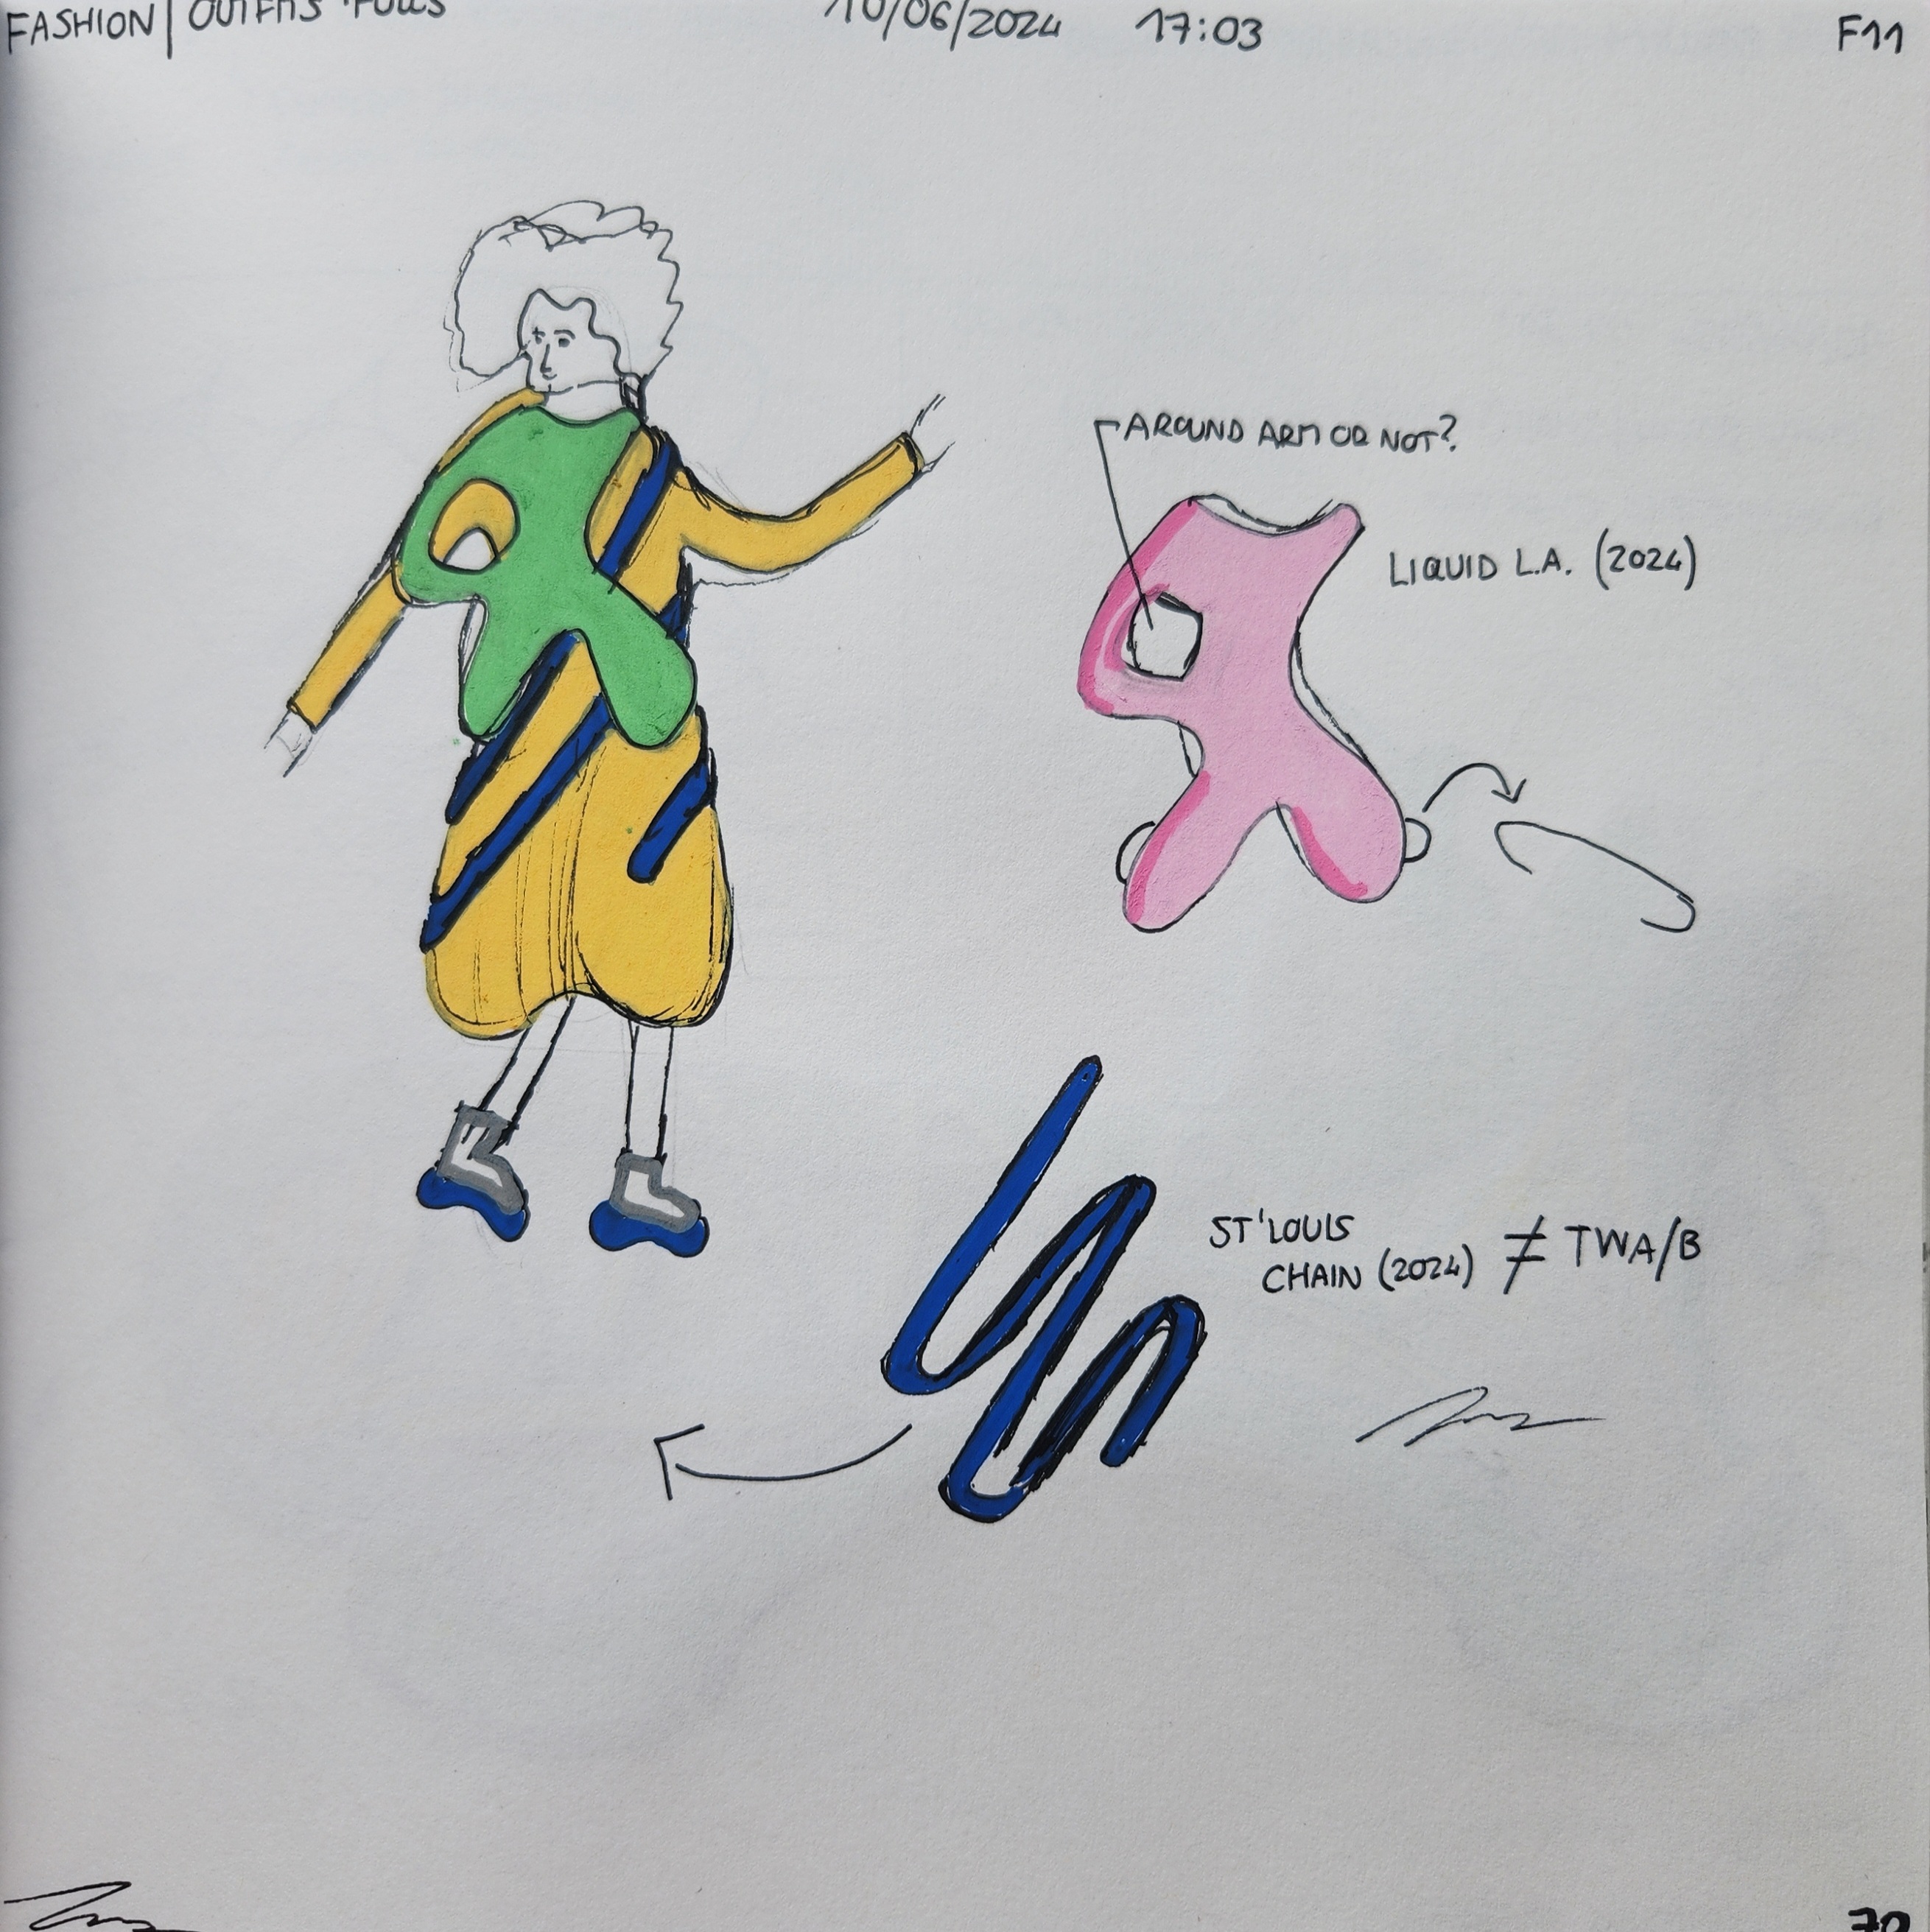 FASHION | OUTFITS
10/06/2024 17:03
F11
AROUND ARM OR NOT?
LIQUID L.A. (2024)
ST'LOUIS
CHAIN (2024) ≠ TWA/B